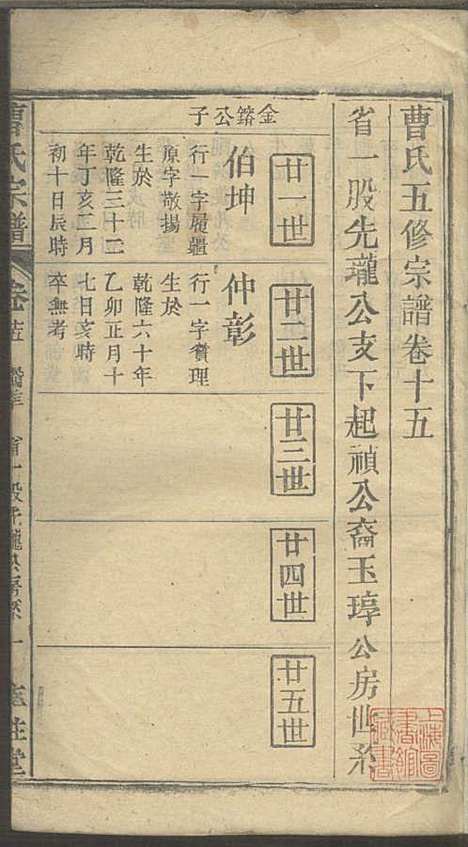 曹氏五修宗譜卷十五
省一股先瓏公支下起禎公裔玉璋公房世系
上海圖書館藏書
廿一世
廿二世
廿三世
廿四世
廿五世
金鎔公子
伯坤
行一字履疆
原字敬揚
生於
乾隆三十二
年丁亥三月
初十日辰時
仲彰
行一字賓理
生於
乾隆六十年
乙卯正月十
七日亥時
卒無考
曹氏宗譜
卷十五
省一股先瓏公房系
一